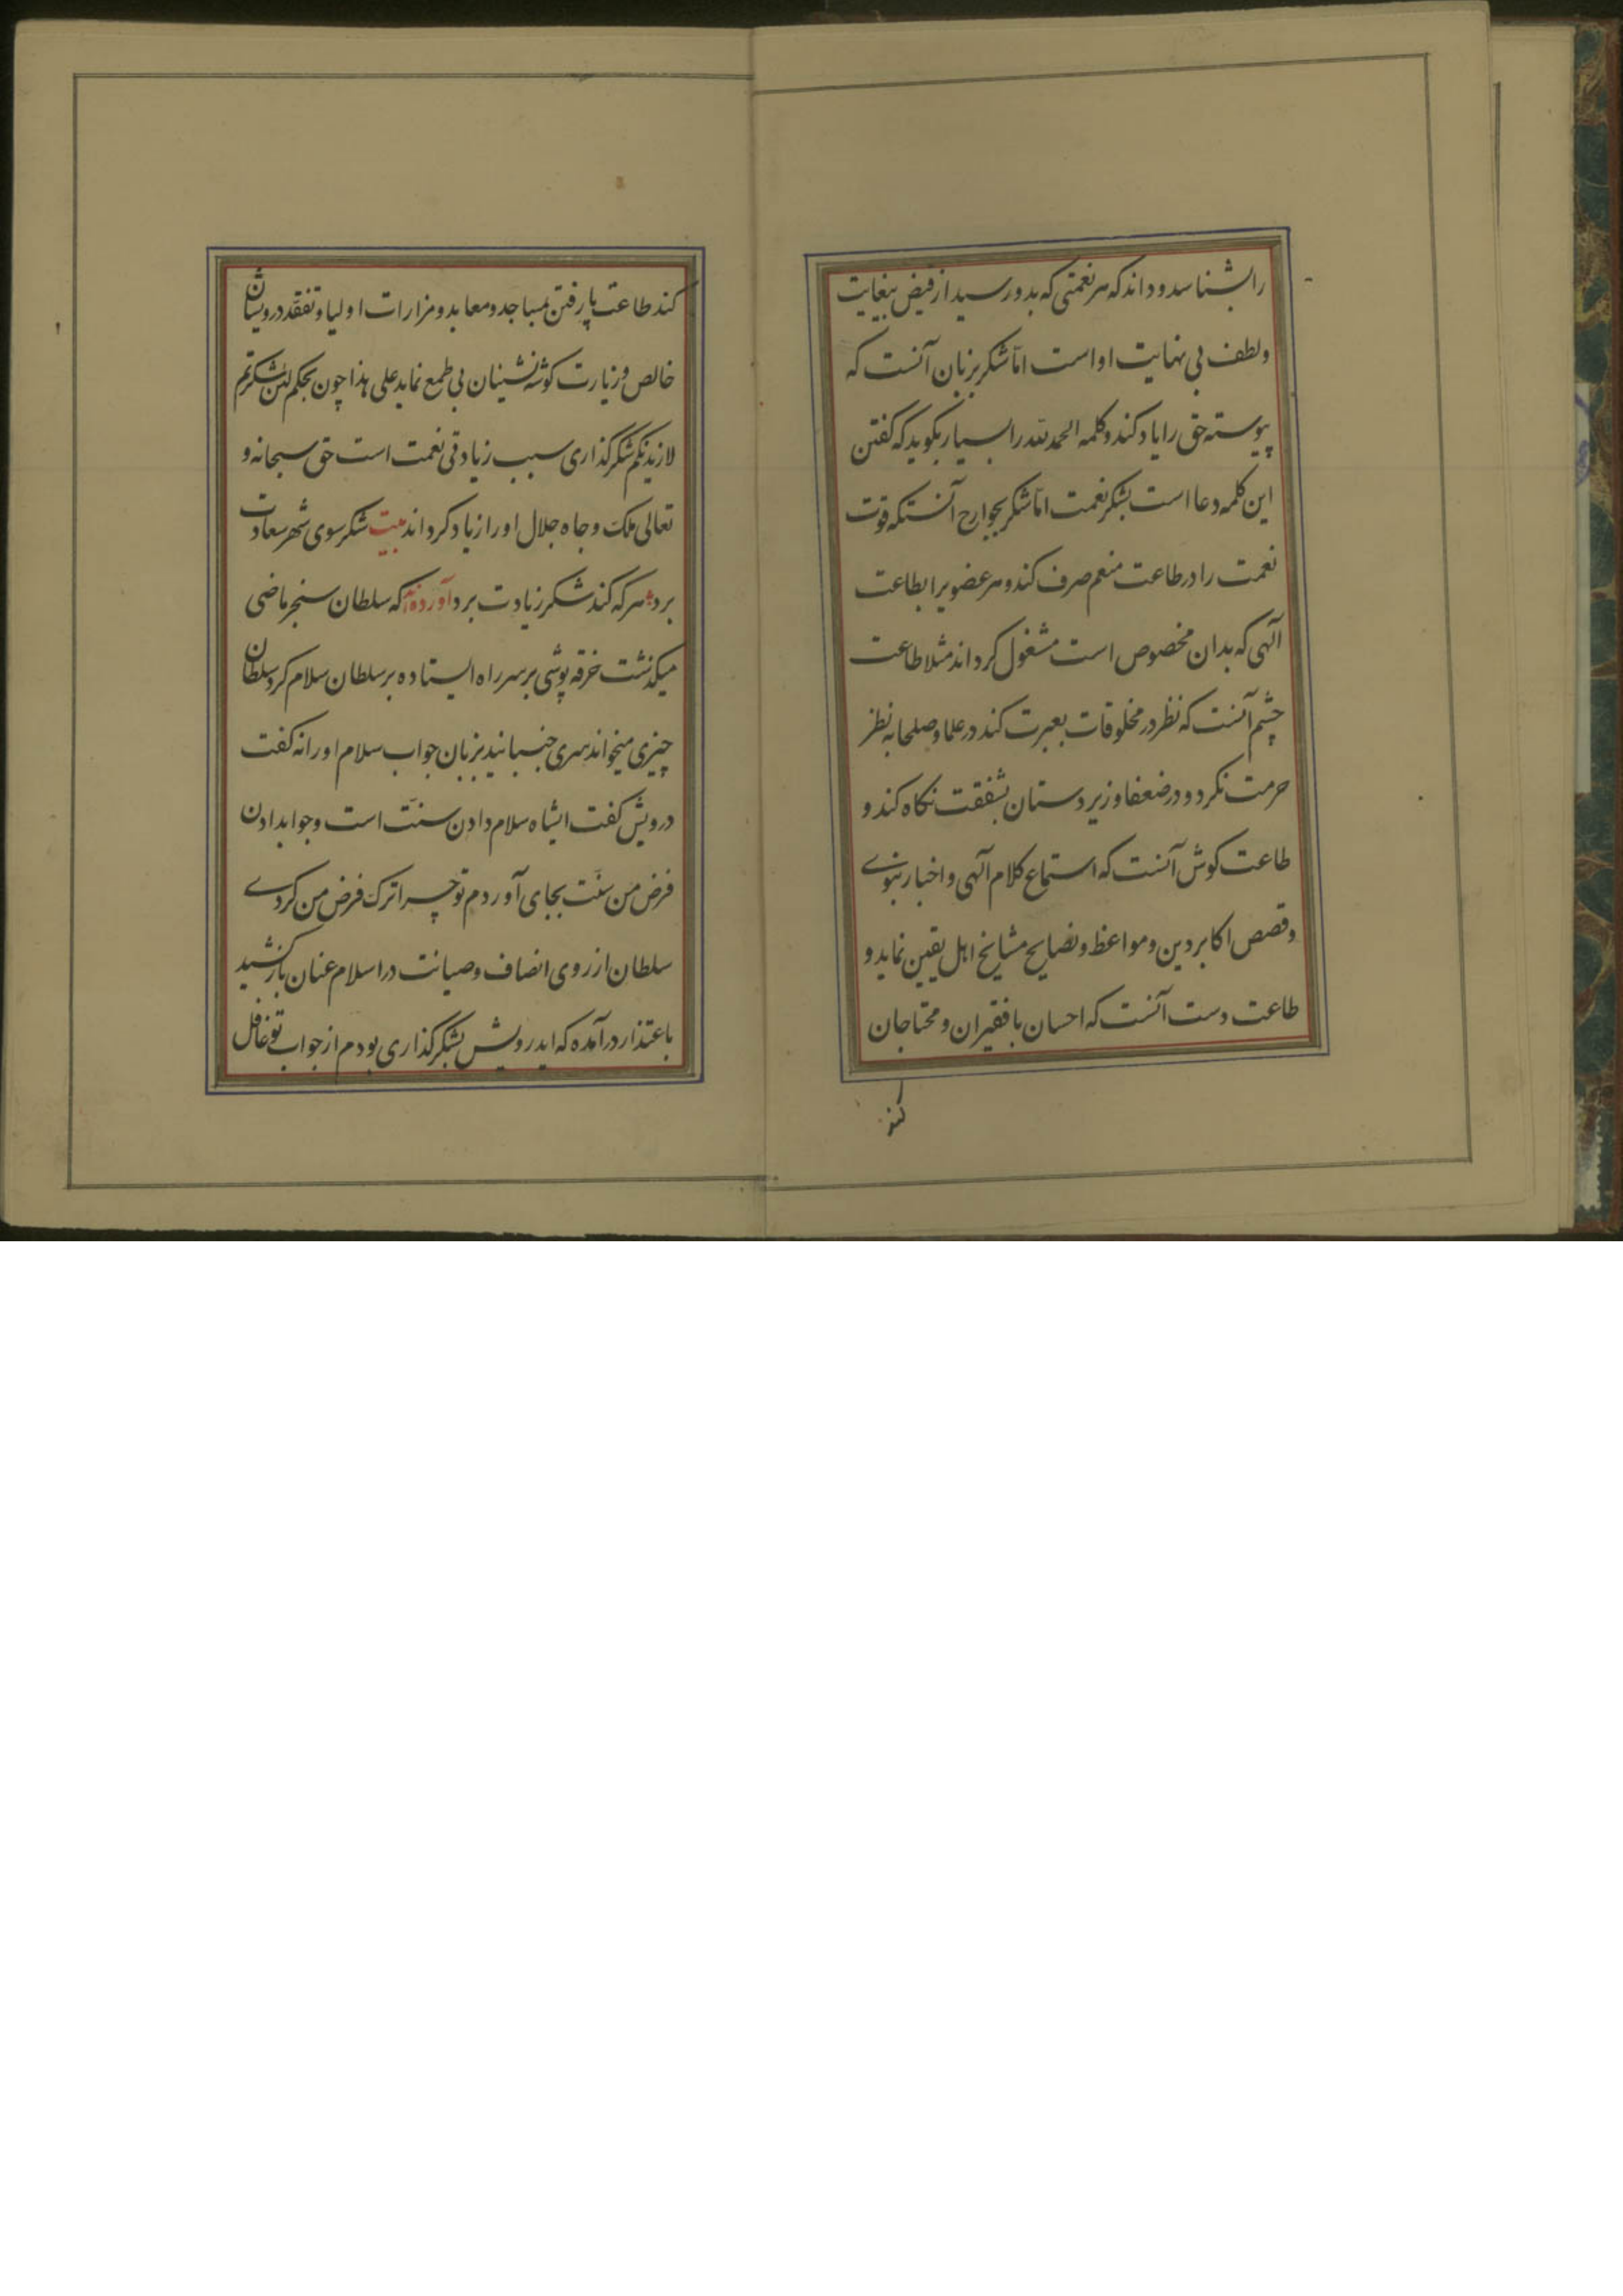 را بشناسد و داند که هر نعمتی که بدو رسید از فیض بیغایت
و لطف بی نهایت او است اما شکر بزبان آنست که
پیوسته حق را یاد کند و کلمه الحمد لله را بسیار بگوید که گفتن
این کلمه دعا است بشکر نعمت اما شکر بجوارح آنستکه قوت
نعمت را در طاعت منعم صرف کند و هر عضویرا بطاعت
آلهی که بدان مخصوص است مشغول کرداند مثلا طاعت
چشم آنست که نظر در مخلوقات بعبرت کند در علما و صلحا به نظر
حرمت نکرد و در ضعفا و زیر دستان بشفقت نکاه کند و
طاعت کوش آنست که استماع کلام آلهی و اخبار نبوی
و قصص اکابر دین و مواعظ و نصایح مشایخ اهل یقین نماید و
طاعت دست آنست که احسان با فقیران و محتاجان
کند
کند طاعت پا رفتن بمساجد و معابد و مزارات اولیا و تفقد درویشان
خالص و زیارت کوشه نشینان بی طمع نماید علی هذا چون بحکم لئن شکرتم
لازیدنکم شکر کذاری سبب زیادتی نعمت است حق سبحانه و
تعالی ملک و جاه جلال او را زیاد کرداند بیت شکر سوی شهر سعادت
برد هر که کند شکر زیادت برد آورده‌اند که سلطان سنجر ماضی
میکذشت خرقه پوشی بر سر راه ایستاده بر سلطان سلام کرد سلطان
چیزی میخواند سری جنبانید بزبان جواب سلام او را نه کفت
درویش کفت ایشاه سلام دادن سنت است و جوابدادن
فرض من سنت بجای آوردم تو چرا ترک فرض من کردی
سلطان از روی انصاف و صیانت در اسلام عنان باز کشید
باعتذار در آمده که ایدرویش بشکر کذاری بودم از جواب تو غافل